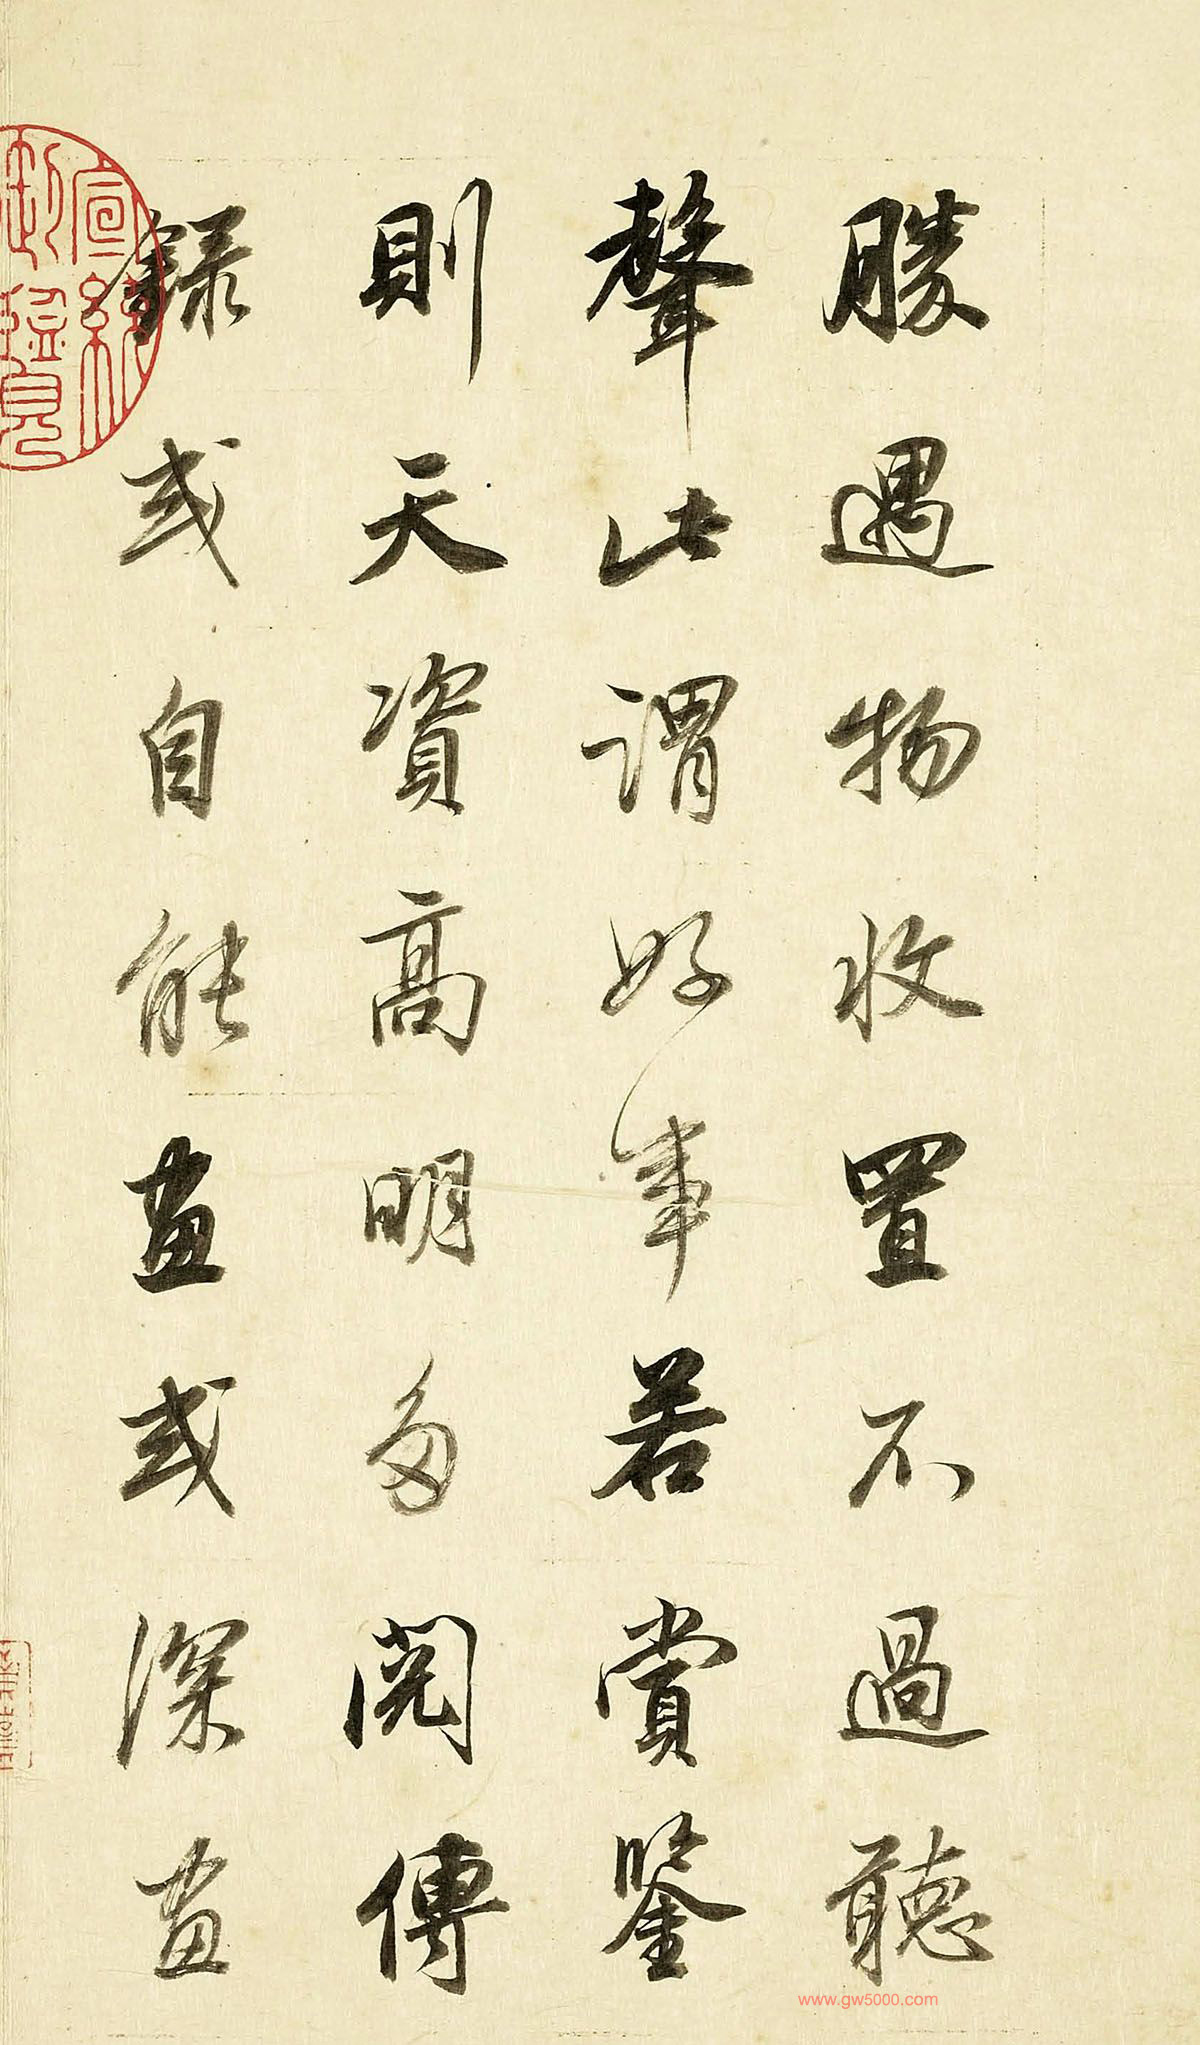 勝遇物收置不過聽
聲此謂好事若賞鑒
則天資高明多閱傳
錄或自能畫或深畫
宣統御覽
www.gw5000.com